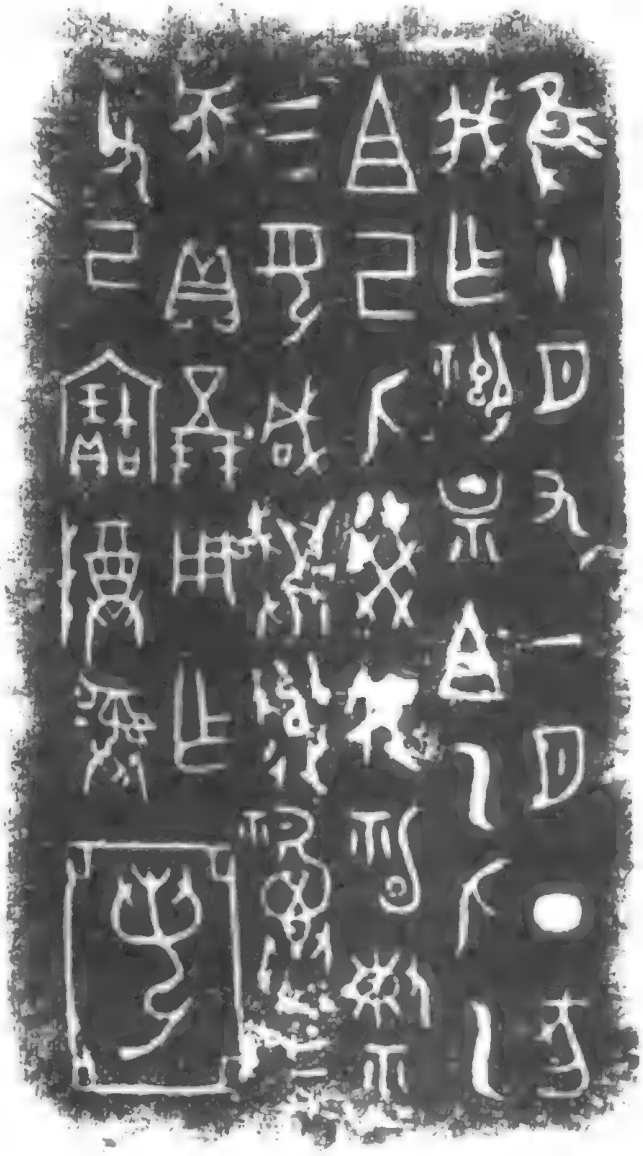 隹十月又一月丁亥
我乍禦祟且乙匕乙
且己匕癸祉礿
二女咸
貝五朋用乍
父己寶尊彝
亞若